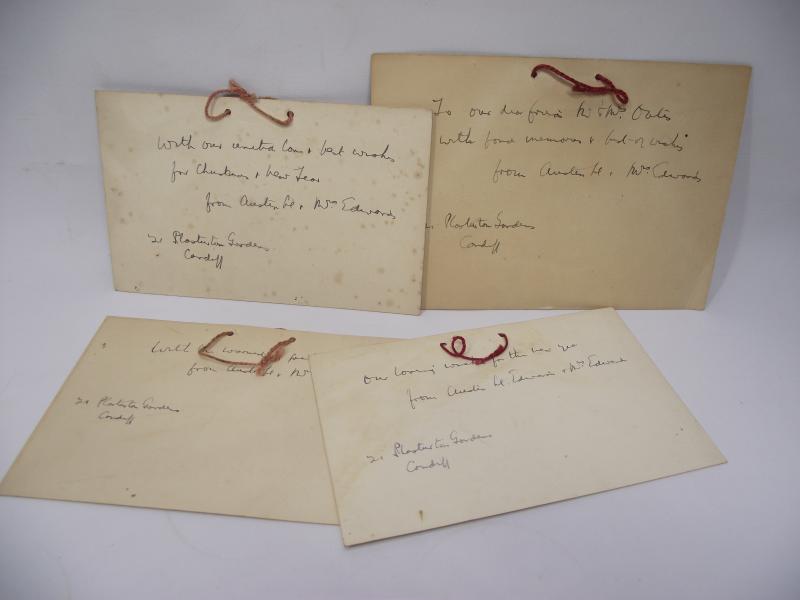 With our united love & best wishes
for Christmas & New Year
from Austen Ll. & Mrs Edwards
20 Plasturton Gardens
Cardiff
To our dear friends Mr & Mrs Oates
with fond memories & best of wishes
from Austen Ll. & Mrs Edwards
Plasturton Gardens
Cardiff
With
from Austen Ll. & Mr
20 Plasturton Gardens
Cardiff
Our loving wishes for the new year
from Austen Ll. Edwards & Mrs Edwards
20 Plasturton Gardens
Cardiff